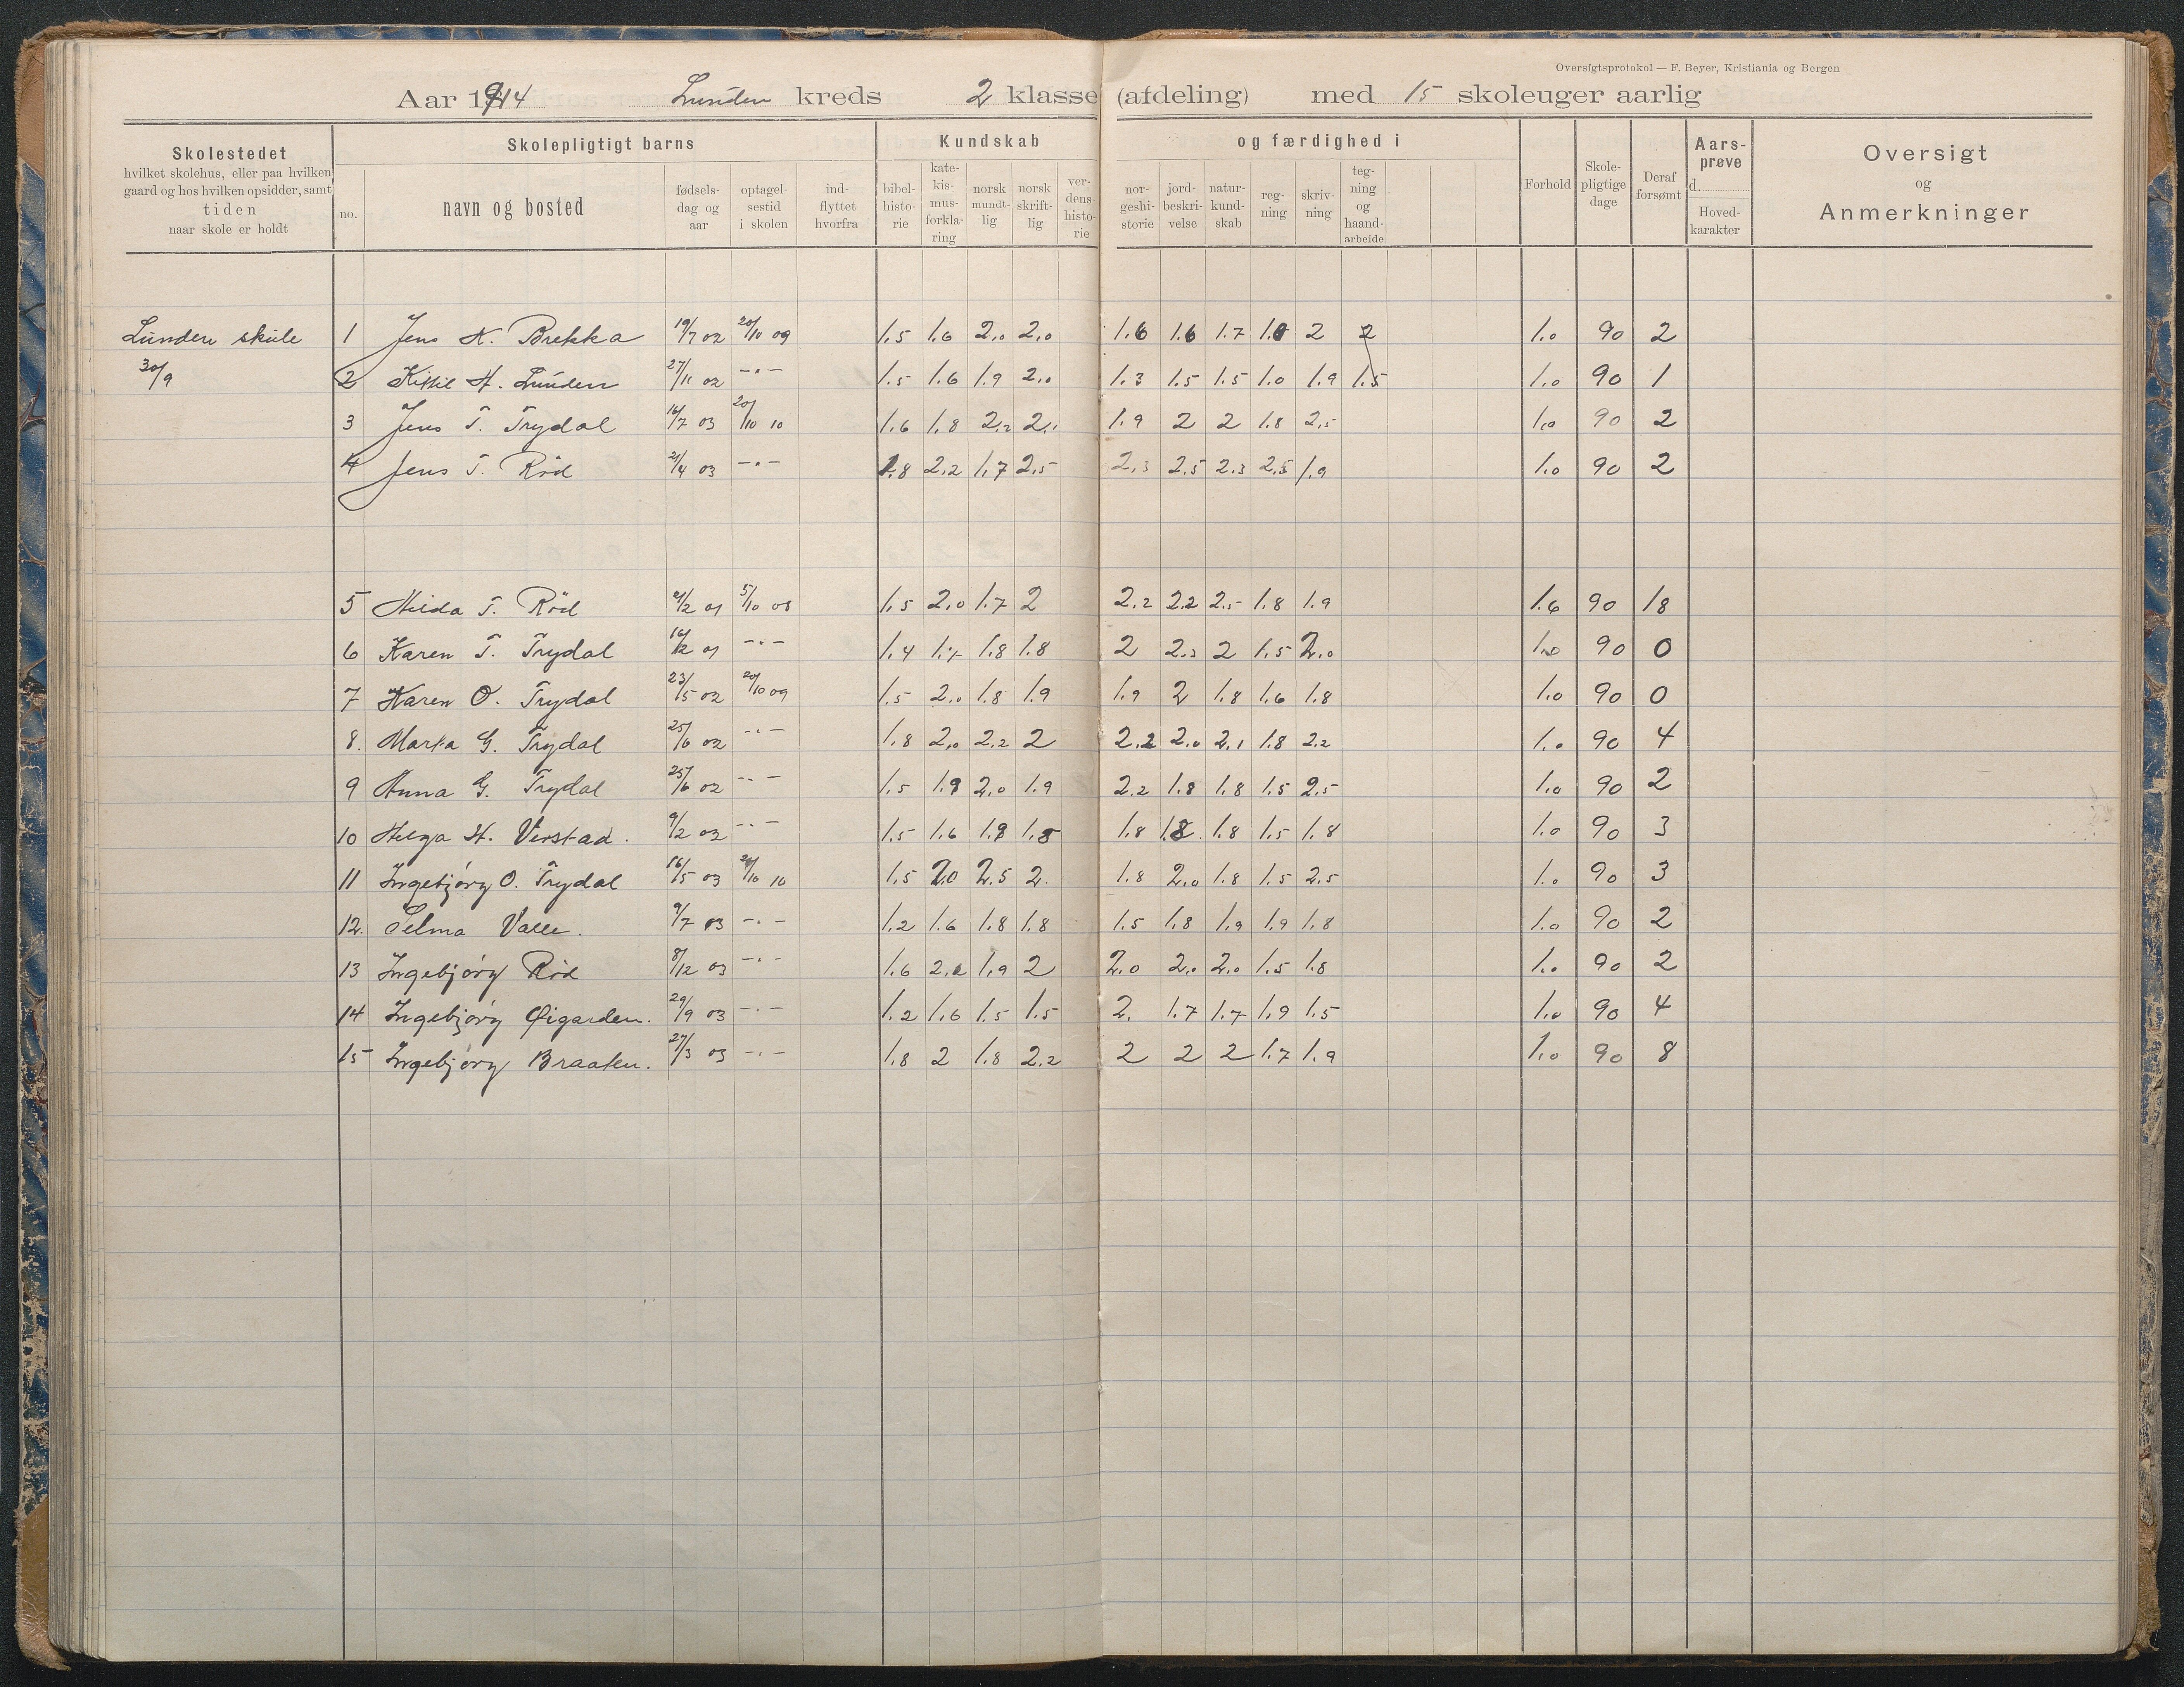 Oversigtsprotokol — F. Beyer, Kristiania og Bergen
Aar 1914 Lunden kreds 2 klasse (afdeling) med 15 skoleuger aarlig
Skolestedet
hvilket skolehus, eller paa hvilken
gaard og hos hvilken opsidder, samt
tiden
naar skole er holdt
Skolepligtigt barns
no.
navn og bosted
fødsels-
dag og
aar
optagel-
sestid
i skolen
ind-
flyttet
hvorfra
Kundskab
bibel-
histo-
rie
kate-
kis-
mus-
forkla-
ring
norsk
mundt-
lig
norsk
skrift-
lig
ver-
dens-
histo-
rie
og færdighed i
nor-
geshi-
storie
jord-
beskri-
velse
natur-
kund-
skab
reg-
ning
skriv-
ning
teg-
ning
og
haand-
arbeide
Forhold
Skole-
pligtige
dage
Deraf
forsømt
Aars-
prøve
d.
Hoved-
karakter
Oversigt
og
Anmerkninger
Lunden skule 1 Jens K. Brekka 19/7 02 20/10 09 1.5 1.6 2.0 2.0 1.6 1.6 1.7 1.0 2 2 1.0 90 2
30/9 2 Kittil H. Lunden 27/11 02 -"- 1.5 1.6 1.9 2.0 1.3 1.5 1.5 1.0 1.9 1.5 1.0 90 1
3 Jens T. Trydal 16/7 03 20/10 10 1.6 1.8 2.2 2.1 1.9 2 2 1.8 2.5 1.0 90 2
4 Jens T. Röd 21/4 03 -"- 1.8 2.2 1.7 2.5 2.3 2.5 2.3 2.5 1.9 1.0 90 2
5 Hilda T. Röd 21/2 01 5/10 08 1.5 2.0 1.7 2 2.2 2.2 2.5 1.8 1.9 1.6 90 18
6 Karen T. Trydal 16/12 01 -"- 1.4 1.7 1.8 1.8 2 2.3 2 1.5 2.0 1.0 90 0
7 Karen O. Trydal 23/5 02 20/10 09 1.5 2.0 1.8 1.9 1.9 2 1.8 1.6 1.8 1.0 90 0
8. Marta G. Trydal 25/6 02 -"- 1.8 2.0 2.2 2 2.2 2.0 2.1 1.8 2.2 1.0 90 4
9 Anna G. Trydal 25/6 02 -"- 1.5 1.9 2.0 1.9 2.2 1.8 1.8 1.5 2.5 1.0 90 2
10 Helga H. Verstad. 9/2 02 -"- 1.5 1.6 1.9 1.8 1.8 1.8. 1.8 1.5 1.8 1.0 90 3
11 Ingebjörg O. Trydal 16/5 03 20/10 10 1.5 2.0 2.5 2. 1.8 2.0 1.8 1.5 2.5 1.0 90 3
12. Selma Valle. 9/7 03 -"- 1.2 1.6 1.8 1.8 1.5 1.8 1.9 1.9 1.8 1.0 90 2
13 Ingebjörg Röd 8/12 03 -"- 1.6 2.2 1.9 2 2.0 2.0 2.0 1.5 1.8 1.0 90 2
14 Ingebjörg Øigarden. 29/9 03 -"- 1.2 1.6 1.5 1.5 2. 1.7 1.7 1.9 1.5 1.0 90 4
15 Ingebjörg Braaten. 27/3 03 -"- 1.8 2 1.8 2.2 2 2 2 1.7 1.9 1.0 90 8